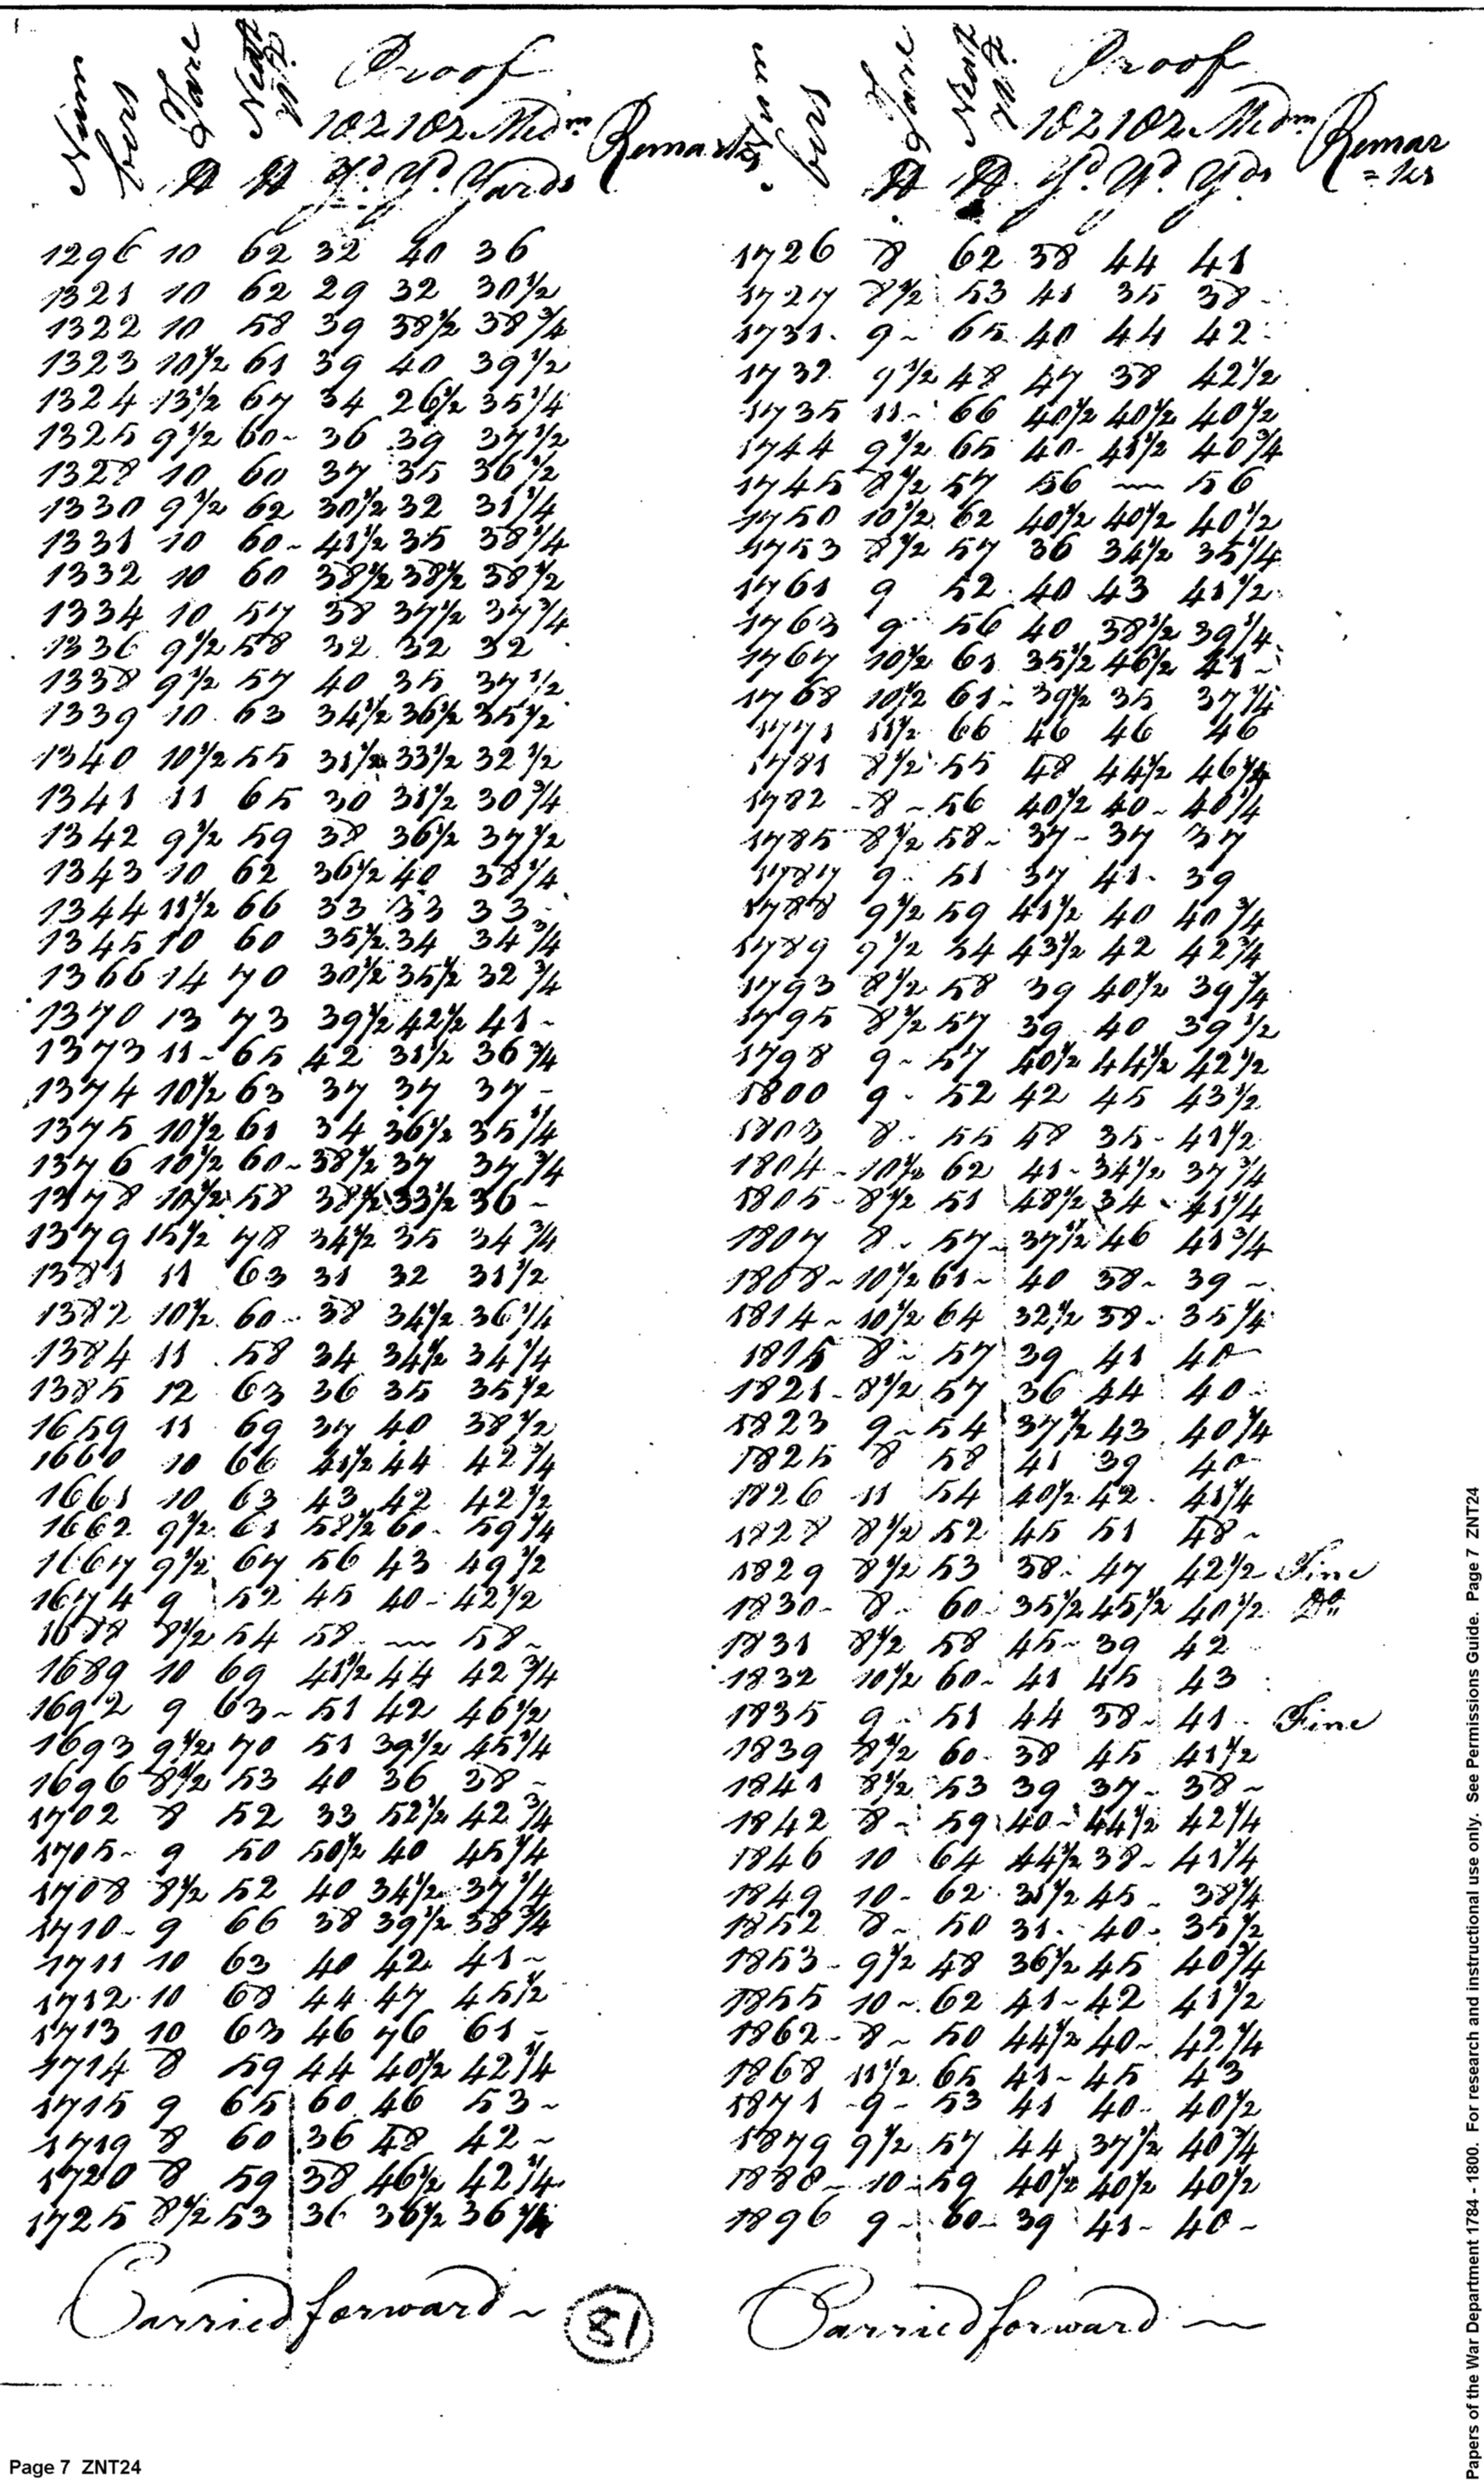 Num bers Tare Neat Wt. Proof Remarks
lb lb 1st oz 2d oz Medm Yd. Yd. Yards
1296 10 62 32 40 36
1321 10 62 29 32 30 1/2
1322 10 58 39 38 1/2 38 3/4
1323 10 1/2 61 39 40 39 1/2
1324 13 1/2 67 34 26 1/2 35 1/4
1325 9 1/2 60~ 36 39 37 1/2
1328 10 60 37 35 36 1/2
1330 9 1/2 62 30 1/2 32 31 1/4
1331 10 60~ 41 1/2 35 38 1/4
1332 10 60 38 1/2 38 1/2 38 1/2
1334 10 57 38 37 1/2 37 3/4
1336 9 1/2 58 32 32 32
1338 9 1/2 57 40 35 37 1/2
1339 10 63 34 1/2 36 1/2 35 1/2
1340 10 1/2 55 31 1/2 33 1/2 32 1/2
1341 11 65 30 31 1/2 30 3/4
1342 9 1/2 59 38 36 1/2 37 1/2
1343 10 62 36 1/2 40 38 1/4
1344 11 1/2 66 33 33 33
1345 10 60 35 1/2 34 34 3/4
1366 14 70 30 1/2 35 1/2 32 3/4
1370 13 73 39 1/2 42 1/2 41~
1373 11~ 65 42 31 1/2 36 3/4
1374 10 1/2 63 37 37 37~
1375 10 1/2 61 34 36 1/2 35 1/4
1376 10 1/2 60~ 38 1/2 37 37 3/4
1378 10 1/2 58 38 1/2 33 1/2 36~
1379 15 1/2 78 34 1/2 35 34 3/4
1381 11 63 31 32 31 1/2
1382 10 1/2 60 38 34 1/2 36 1/4
1384 11 58 34 34 1/2 34 1/4
1385 12 63 36 35 35 1/2
1659 11 69 37 40 38 1/2
1660 10 66 41 1/2 44 42 3/4
1661 10 63 43 42 42 1/2
1662 9 1/2 61 58 1/2 60 59 1/4
1667 9 1/2 67 56 43 49 1/2
1674 9 52 45 40~ 42 1/2
1688 8 1/2 54 58 ~~ 58~
1689 10 69 41 1/2 44 42 3/4
1692 9 63~ 51 42 46 1/2
1693 9 1/2 70 51 39 1/2 45 1/4
1696 8 1/2 53 40 36 38~
1702 8 52 33 52 1/2 42 3/4
1705~ 9 50 50 1/2 40 45 1/4
1708 8 1/2 52 40 34 1/2 37 1/4
1710~ 9 66 38 39 1/2 38 3/4
1711 10 63 40 42 41~
1712 10 68 44 47 45 1/2
1713 10 63 46 76 61~
1714 8 59 44 40 1/2 42 1/4
1715 9 65 60 46 53~
1719 8 60 36 48 42~
1720 8 59 38 46 1/2 42 1/4
1725 8 1/2 53 36 36 1/2 36 1/4
Carried forward~
Num bers Tare Neat Wt. Proof Remar=ks
lb lb 1st oz 2d oz Medm Yd. Yd. Yds
1726 8 62 38 44 41
1727 8 1/2 53 41 35 38
1731 9~ 65 40 44 42
1732 9 1/2 48 47 38 42 1/2
1735 11~ 66 40 1/2 40 1/2 40 1/2
1744 9 1/2 65 40 41 1/2 40 3/4
1745 8 1/2 57 56 ~~ 56
1750 10 1/2 62 40 1/2 40 1/2 40 1/2
1753 8 1/2 57 36 34 1/2 35 1/4
1761 9 52 40 43 41 1/2
1763 9 56 40 38 1/2 39 1/4
1767 10 1/2 61 35 1/2 46 1/2 41~
1768 10 1/2 61~ 39 1/2 35 37 1/4
1771 11 1/2 66 46 46 46
1781 8 1/2 55 48 44 1/2 46 1/4
1782 8~ 56 40 1/2 40~ 40 1/4
1785 8 1/2 58~ 37~ 37 37
1787 9 51 37 41 39
1788 9 1/2 59 41 1/2 40 40 3/4
1789 9 1/2 54 43 1/2 42 42 3/4
1793 8 1/2 58 39 40 1/2 39 3/4
1795 8 1/2 57 39 40 39 1/2
1798 9~ 57 40 1/2 44 1/2 42 1/2
1800 9 52 42 45 43 1/2
1803 8 55 48 35 41 1/2
1804~ 10 1/2 62 41~ 34 1/2 37 3/4
1805~ 8 1/2 51 48 1/2 34 41 1/4
1807 8 57 37 1/2 46 41 3/4
1808~ 10 1/2 61~ 40 38~ 39~
1814~ 10 1/2 64 32 1/2 38 35 1/4
1815 8~ 57 39 41 40
1821~ 8 1/2 57 36 44 40
1823 9~ 54 37 1/2 43 40 1/4
1825 8 58 41 39 40
1826 11 54 40 1/2 42 41 1/4
1828 8 1/2 52 45 51 48~
1829 8 1/2 53 38 47 42 1/2 Fine
1830~ 8 60 35 1/2 45 1/2 40 1/2 Do
1831 8 1/2 58 45~ 39 42
1832 10 1/2 60~ 41 45 43
1835 9 51 44 38~ 41 Fine
1839 8 1/2 60 38 45 41 1/2
1841 8 1/2 53 39 37 38~
1842 8~ 59 40~ 44 1/2 42 1/4
1846 10 64 44 1/2 38~ 41 1/4
1849 10~ 62 31 1/2 45 38 1/4
1852 8~ 50 31 40 35 1/2
1853~ 9 1/2 48 36 1/2 45 40 3/4
1855 10~ 62 41~ 42 41 1/2
1862~ 8~ 50 44 1/2 40~ 42 1/4
1868 11 1/2 65 41~ 45 43
1871 9~ 53 41 40 40 1/2
1879 9 1/2 57 44 37 1/2 40 3/4
1888~ 10 59 40 1/2 40 1/2 40 1/2
1896 9~ 60 39 41~ 40~
Carried forward~
81
Page 7 ZNT24
Papers of the War Department 1784 - 1800. For research and instructional use only. See Permissions Guide. Page 7 ZNT24